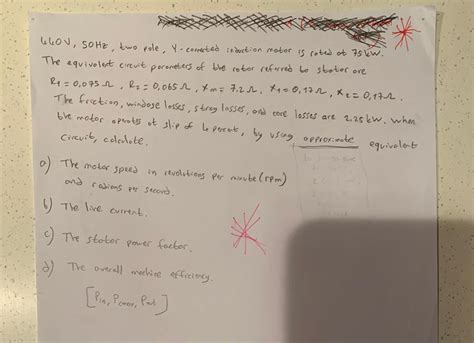 440V, 50Hz, two pole, Y-connected induction motor is rated at 75kW.
The equivalent circuit parameters of the rotor referred to stator are
R1=0,075Ω, R2=0,065Ω, Xm=7.2Ω, X1=0,17Ω, X2=0,17Ω.
The friction, windage losses, stray losses, and core losses are 2.25kW. When
the motor operates at slip of 4 percent, by using approximate equivalent
circuit, calculate.
a) The motor speed in revolutions per minute (rpm)
and radians per second.
b) The line current.
c) The stator power factor.
d) The overall machine efficiency.
[Pin, Pconv, Pout]